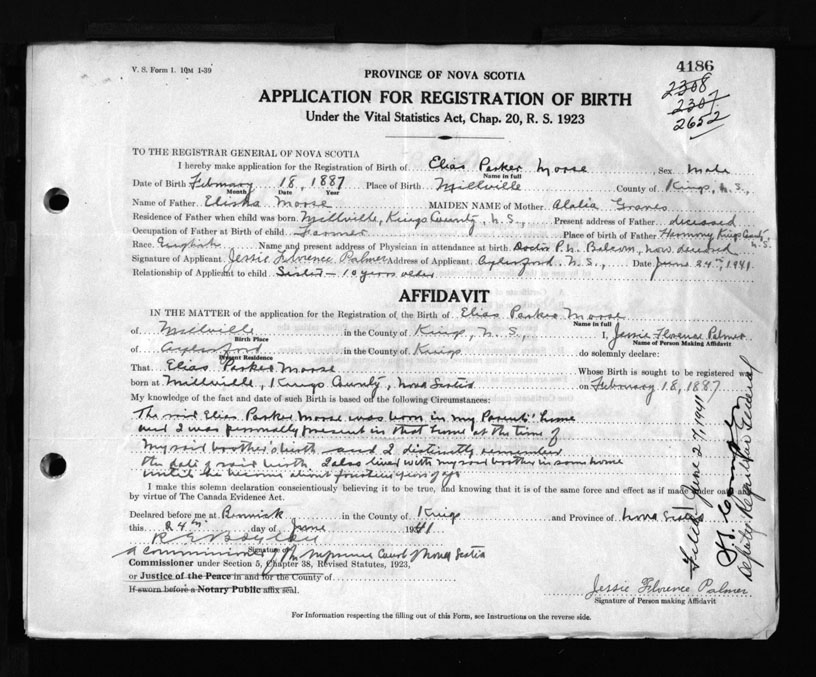 V. S. Form 1. 10M 1-39
4186
PROVINCE OF NOVA SCOTIA
2308
2307
2652
APPLICATION FOR REGISTRATION OF BIRTH
Under the Vital Statistics Act, Chap. 20, R. S. 1923
TO THE REGISTRAR GENERAL OF NOVA SCOTIA
I hereby make application for the Registration of Birth of Elias Parker Moose Sex Male
Name in full
Date of Birth February 18, 1887 Place of Birth Millville County of Kings, N.S.,
Month Date Year
Name of Father Elisha Moose MAIDEN NAME of Mother Graves
Residence of Father when child was born Millville, Kings County, N.S., Present address of Father deceased
Occupation of Father at Birth of child Farmer Place of birth of Father Harmony Kings County N.S.
Race English Name and present address of Physician in attendance at birth Doctor P. N. Balcom, now deceased
Signature of Applicant Jessie Florence Palmer Address of Applicant Aylesford, N.S., Date June 24th, 1941
Relationship of Applicant to child Sister - 10 years older
AFFIDAVIT
IN THE MATTER of the application for the Registration of the Birth of Elias Parker Moose
Name in full
of Millville in the County of Kings, N.S., I, Jessie Florence Palmer
Birth Place Name of Person Making Affidavit
of Aylesford in the County of Kings do solemnly declare:
Present Residence
That Elias Parker Moose Whose Birth is sought to be registered was
born at Millville, Kings County, Nova Scotia on February 18, 1887
My knowledge of the fact and date of such Birth is based on the following Circumstances:
The said Elias Parker Moose was born in my Parents' home
and I was personally present in that home at the time of
my said brother's birth and I distinctly remember
the date of said birth. I also lived with my said brother in same home
until he became about fourteen years of age
I make this solemn declaration conscientiously believing it to be true, and knowing that it is of the same force and effect as if made under oath and
by virtue of The Canada Evidence Act.
Declared before me at Berwick in the County of Kings and Province of Nova Scotia
this 24th day of June 1941
Signature of
a Commissioner of the Supreme Court of Nova Scotia
Commissioner under Section 5, Chapter 38, Revised Statutes, 1923,
or Justice of the Peace in and for the County of
If sworn before a Notary Public affix seal.
Jessie Florence Palmer
Signature of Person making Affidavit
For Information respecting the filling out of this Form, see Instructions on the reverse side.
Filed June 27, 1941
Deputy Registrar General